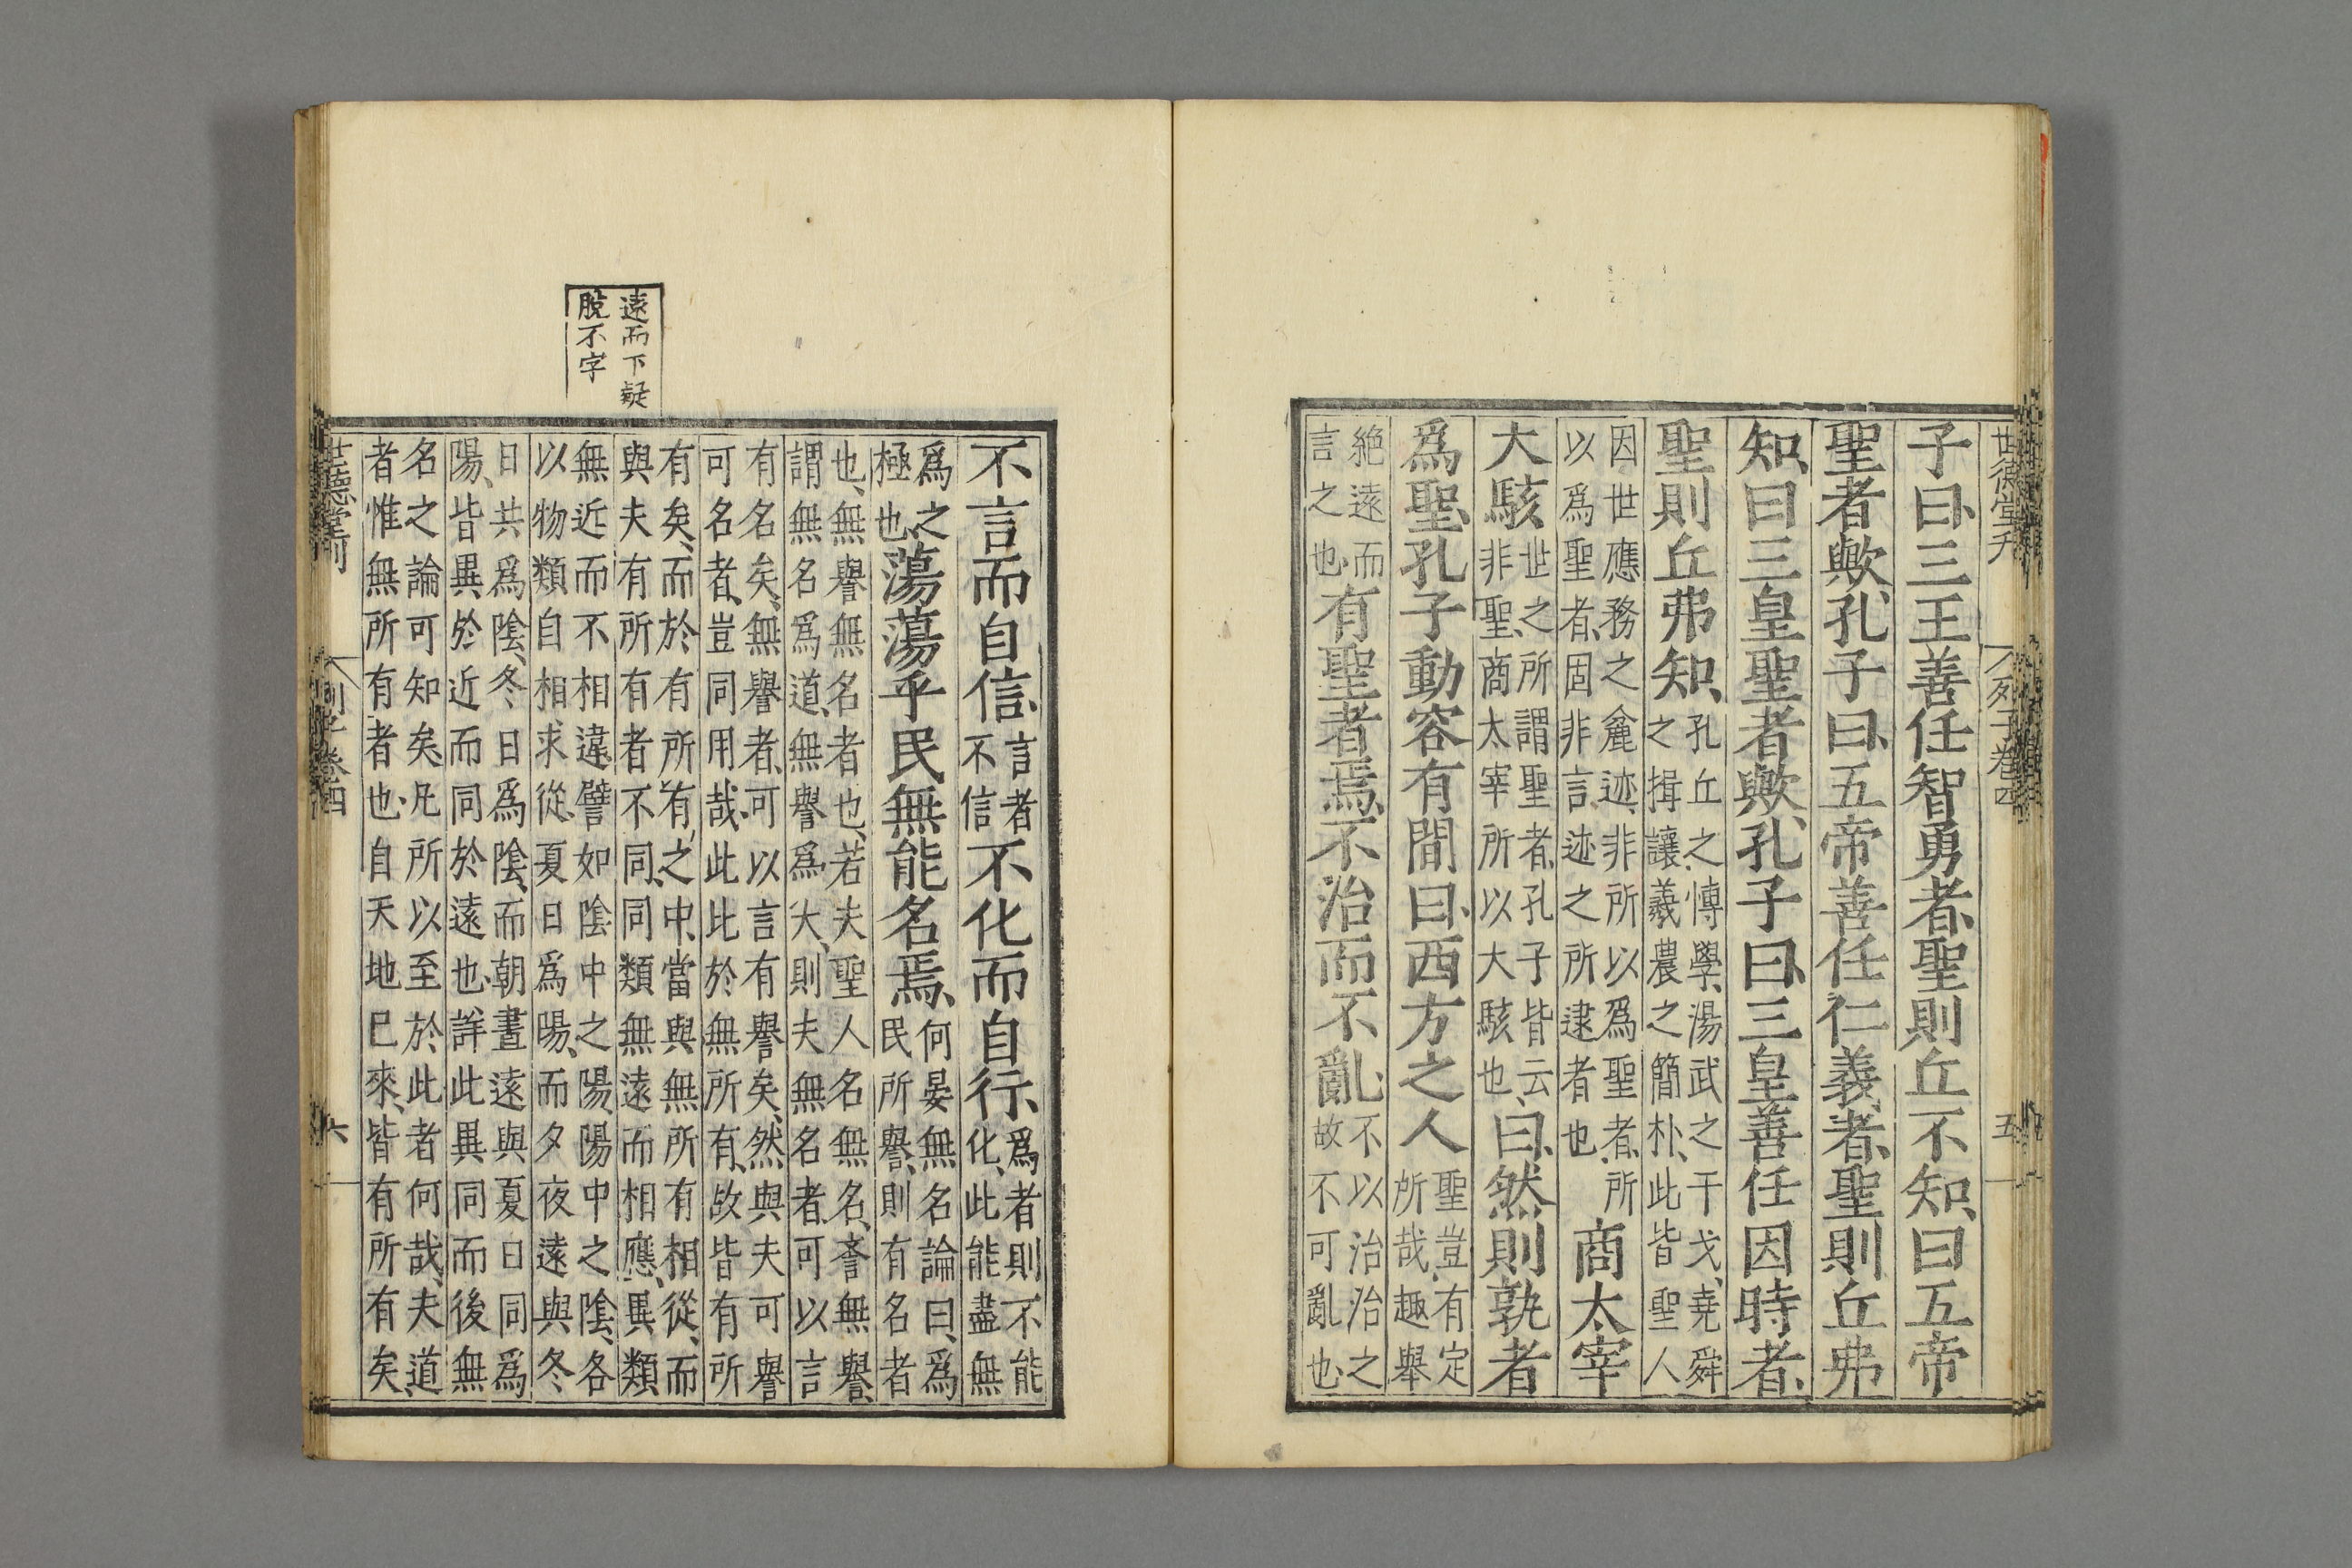 世德堂刊 列子卷四 五
子曰三王善任智勇者聖則丘不知曰五帝
聖者歟孔子曰五帝善任仁義者聖則丘弗
知曰三皇聖者歟孔子曰三皇善任因時者
聖則丘弗知孔丘之博學湯武之干戈堯舜
之揖讓羲農之簡朴此皆聖人
因世應務之麄迹非所以爲聖者所
以爲聖者固非言迹之所逮者也商太宰
大駭世之所謂聖者孔子皆云
非聖商太宰所以大駭也曰然則孰者
爲聖孔子動容有間曰西方之人聖豈有定
所哉趣舉
絶遠而
言之也有聖者焉不治而不亂不以治治之
故不可亂也
不言而自信言者
不信不化而自行爲者則不能
化此能盡無
爲之
極也蕩蕩乎民無能名焉何晏無名論曰爲
民所譽則有名者
也無譽無名者也若夫聖人名無名譽無譽
謂無名爲道無譽爲大則夫無名者可以言
有名矣無譽者可以言有譽矣然與夫可譽
可名者豈同用哉此比於無所有故皆有所
遠而下疑
脫不字
有矣而於有所有之中當與無所有相從而
與夫有所有者不同同類無遠而相應異類
無近而不相違譬如陰中之陽陽中之陰各
以物類自相求從夏日爲陽而夕夜遠與冬
日共爲陰冬日爲陰而朝晝遠與夏日同爲
陽皆異於近而同於遠也詳此異同而後無
名之論可知矣凡所以至於此者何哉夫道
者惟無所有者也自天地已來皆有所有矣
世德堂刊 列子卷四 六